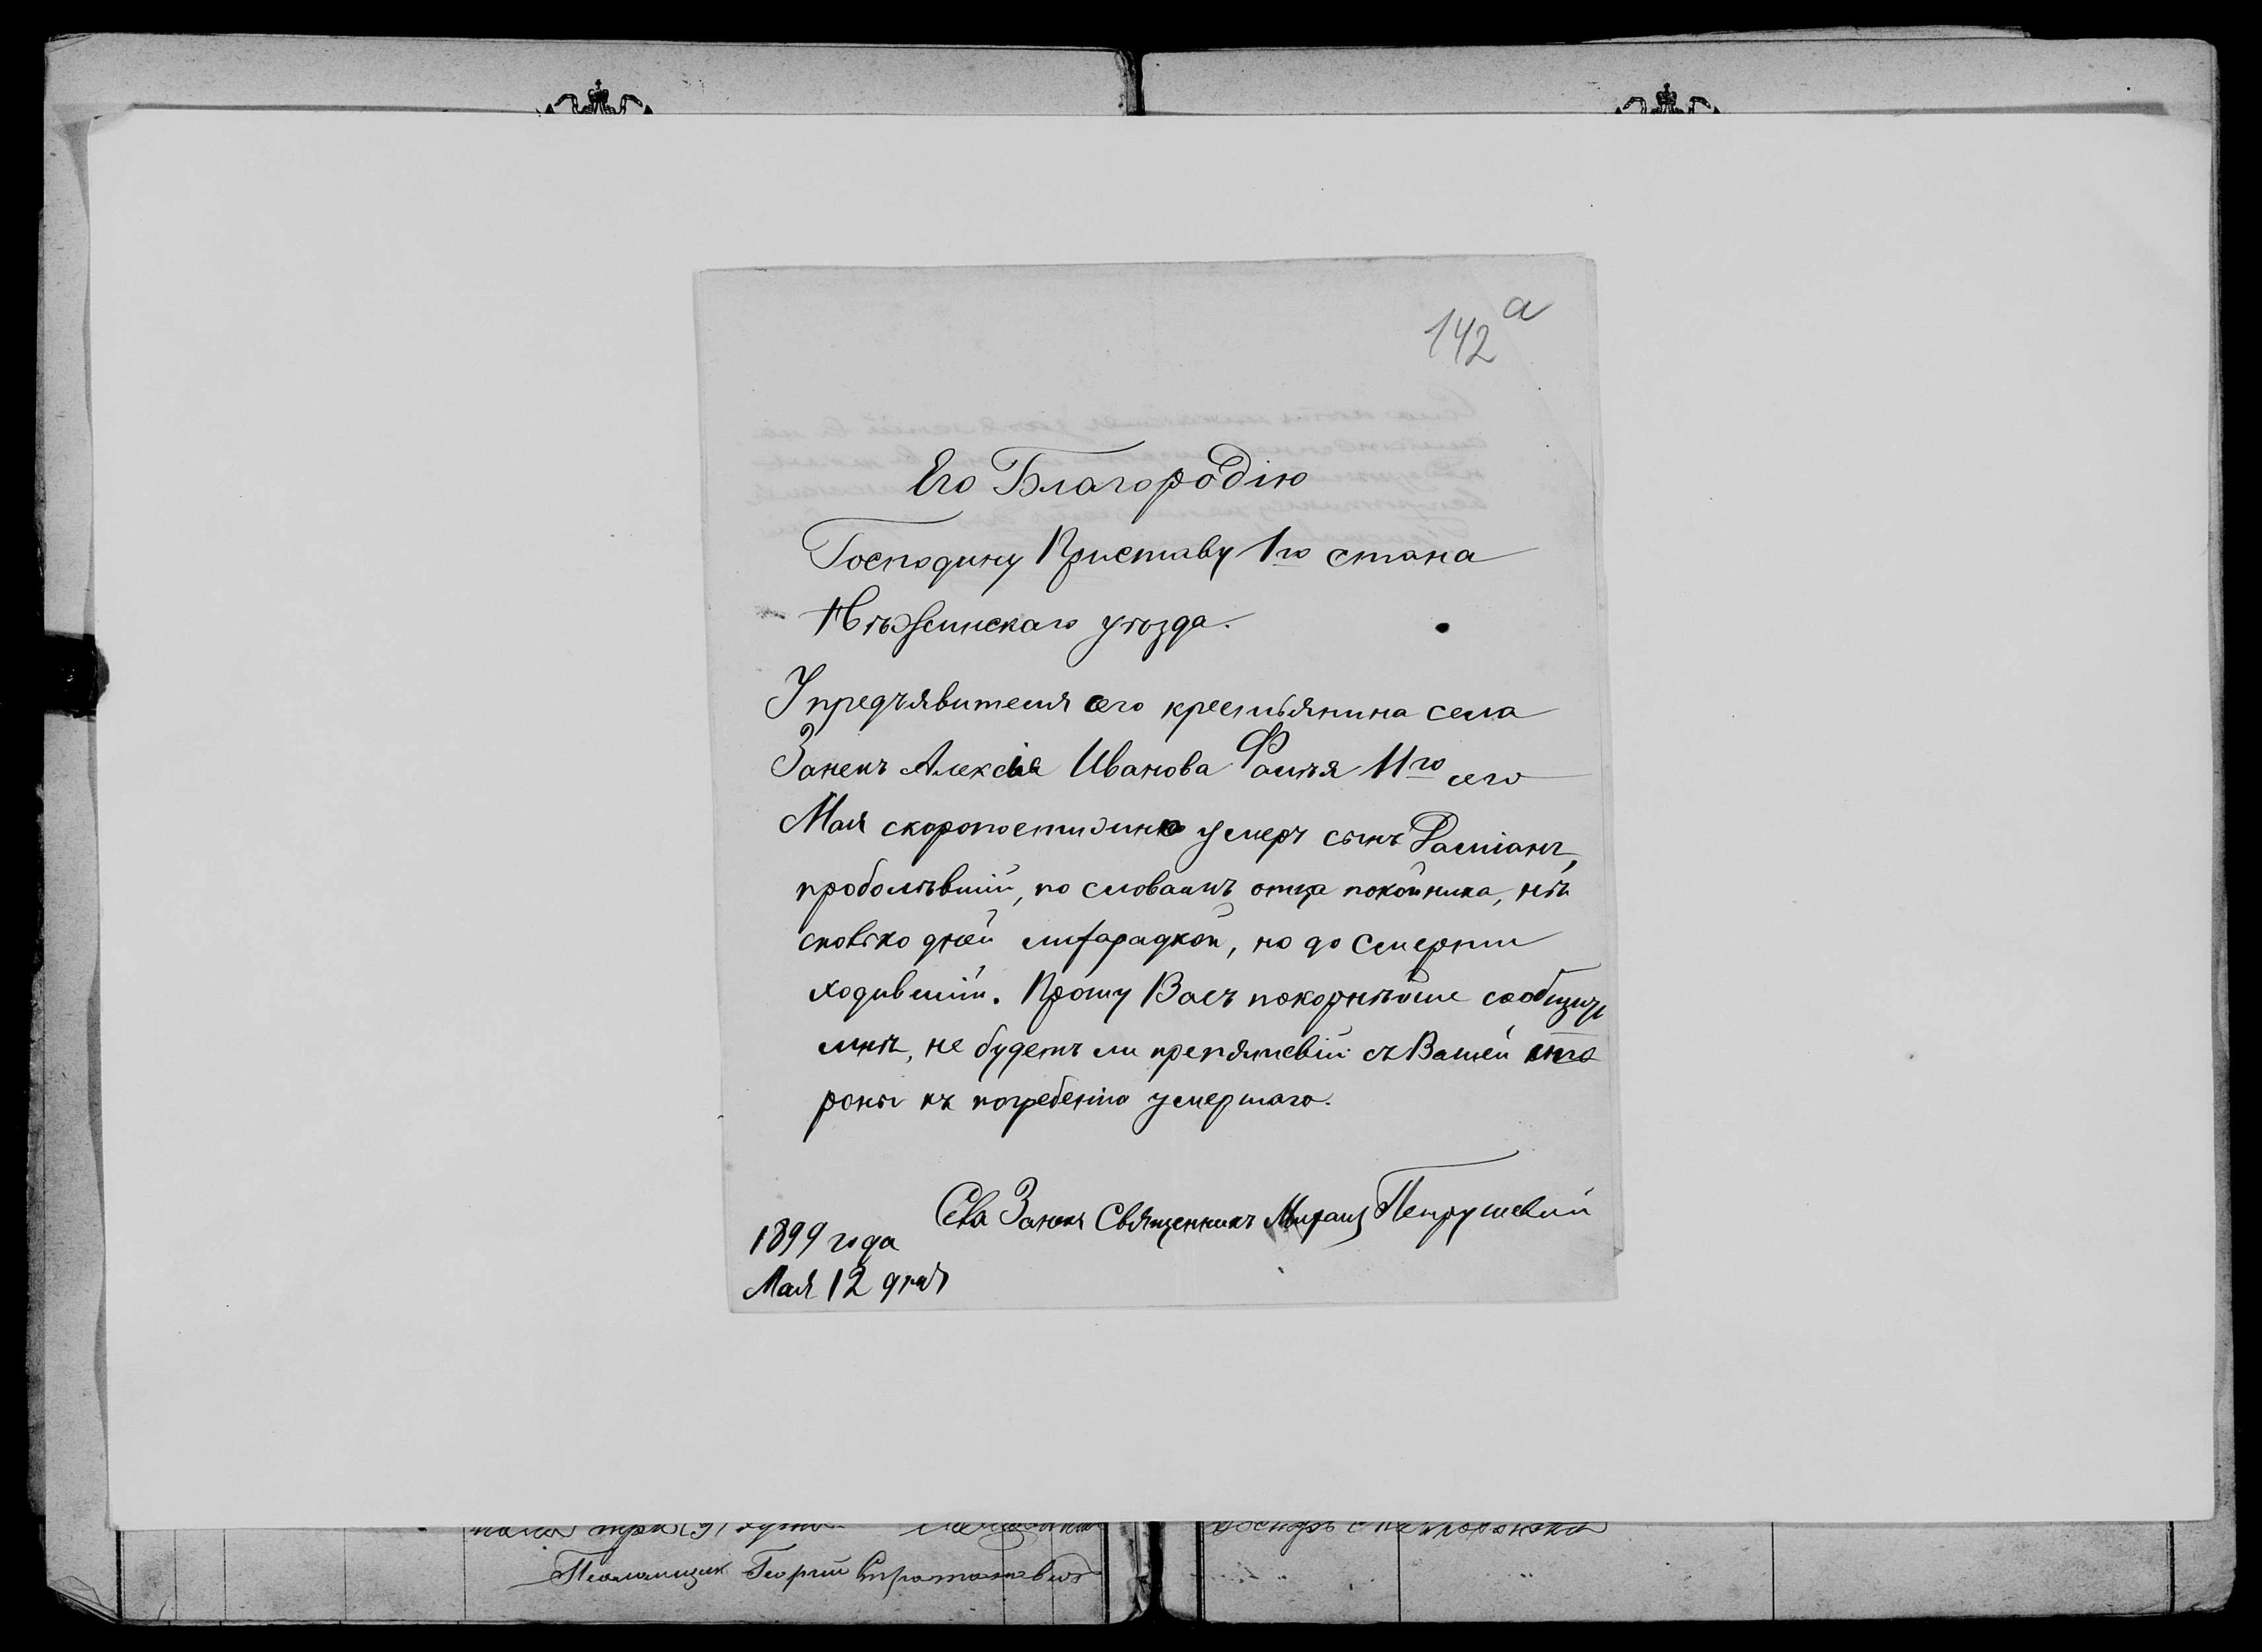 142 а
Его Благородію
Господину Приставу 1го стана
Нѣжинскаго уѣзда.
У предъявителя сего крестьянина села
Занекъ Алексѣя Иванова Фамѣя 11го сего
Мая скоропостижно умеръ сынъ Даміанъ,
проболѣвшій, по словамъ отца покойника, нѣ
сколько дней лихорадкой, но до смерти
ходившій. Прошу Васъ покорнѣйше сообщить
мнѣ, не будетъ ли препятствій съ Вашей сто
роны къ погребенію умершаго.
Села Занекъ Священникъ Михаилъ Петрушевскій
1899 года
Мая 12 дня
Псаломщикъ Георгій